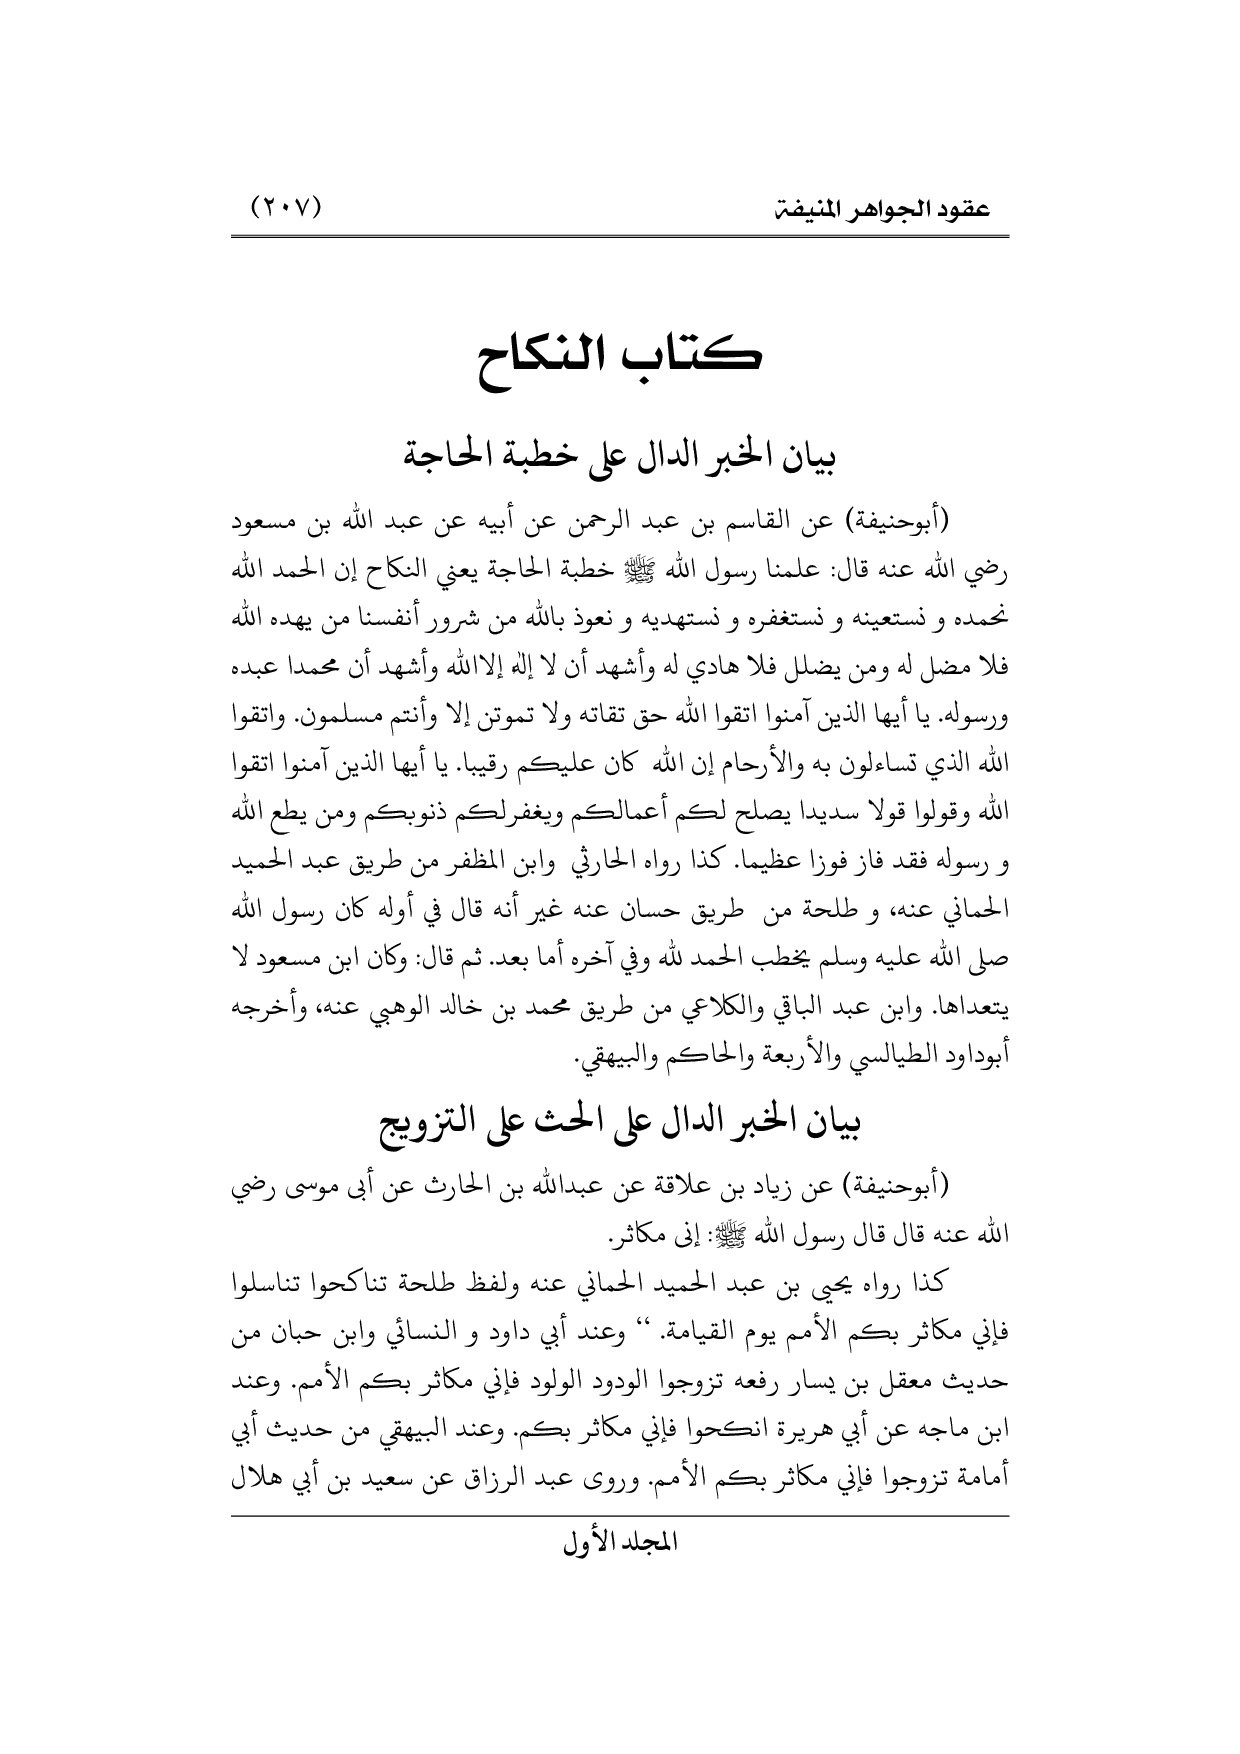 عقود الجواهر المنيفة (٢٠٧)
كتاب النكاح
بيان الخبر الدال على خطبة الحاجة
(أبوحنيفة) عن القاسم بن عبد الرحمن عن أبيه عن عبد الله بن مسعود
رضي الله عنه قال: علمنا رسول الله ﷺ خطبة الحاجة يعني النكاح إن الحمد الله
نحمده و نستعينه و نستغفره و نستهديه و نعوذ بالله من شرور أنفسنا من يهده الله
فلا مضل له ومن يضلل فلا هادي له وأشهد أن لا إله إلاالله وأشهد أن محمدا عبده
ورسوله. يا أيها الذين آمنوا اتقوا الله حق تقاته ولا تموتن إلا وأنتم مسلمون. واتقوا
الله الذي تساءلون به والأرحام إن الله كان عليكم رقيبا. يا أيها الذين آمنوا اتقوا
الله وقولوا قولا سديدا يصلح لكم أعمالكم ويغفرلكم ذنوبكم ومن يطع الله
و رسوله فقد فاز فوزا عظيما. كذا رواه الحارثي وابن المظفر من طريق عبد الحميد
الحماني عنه، و طلحة من طريق حسان عنه غير أنه قال في أوله كان رسول الله
صلى الله عليه وسلم يخطب الحمد لله وفي آخره أما بعد. ثم قال: وكان ابن مسعود لا
يتعداها. وابن عبد الباقي والكلاعي من طريق محمد بن خالد الوهبي عنه، وأخرجه
أبوداود الطيالسي والأربعة والحاكم والبيهقي.
بيان الخبر الدال على الحث على التزويج
(أبوحنيفة) عن زياد بن علاقة عن عبدالله بن الحارث عن أبى موسى رضي
الله عنه قال قال رسول الله ﷺ: إنى مكاثر.
كذا رواه يحيى بن عبد الحميد الحماني عنه ولفظ طلحة تناكحوا تناسلوا
فإني مكاثر بكم الأمم يوم القيامة. “ وعند أبي داود و النسائي وابن حبان من
حديث معقل بن يسار رفعه تزوجوا الودود الولود فإني مكاثر بكم الأمم. وعند
ابن ماجه عن أبي هريرة انكحوا فإني مكاثر بكم. وعند البيهقي من حديث أبي
أمامة تزوجوا فإني مكاثر بكم الأمم. وروى عبد الرزاق عن سعيد بن أبي هلال
المجلد الأول